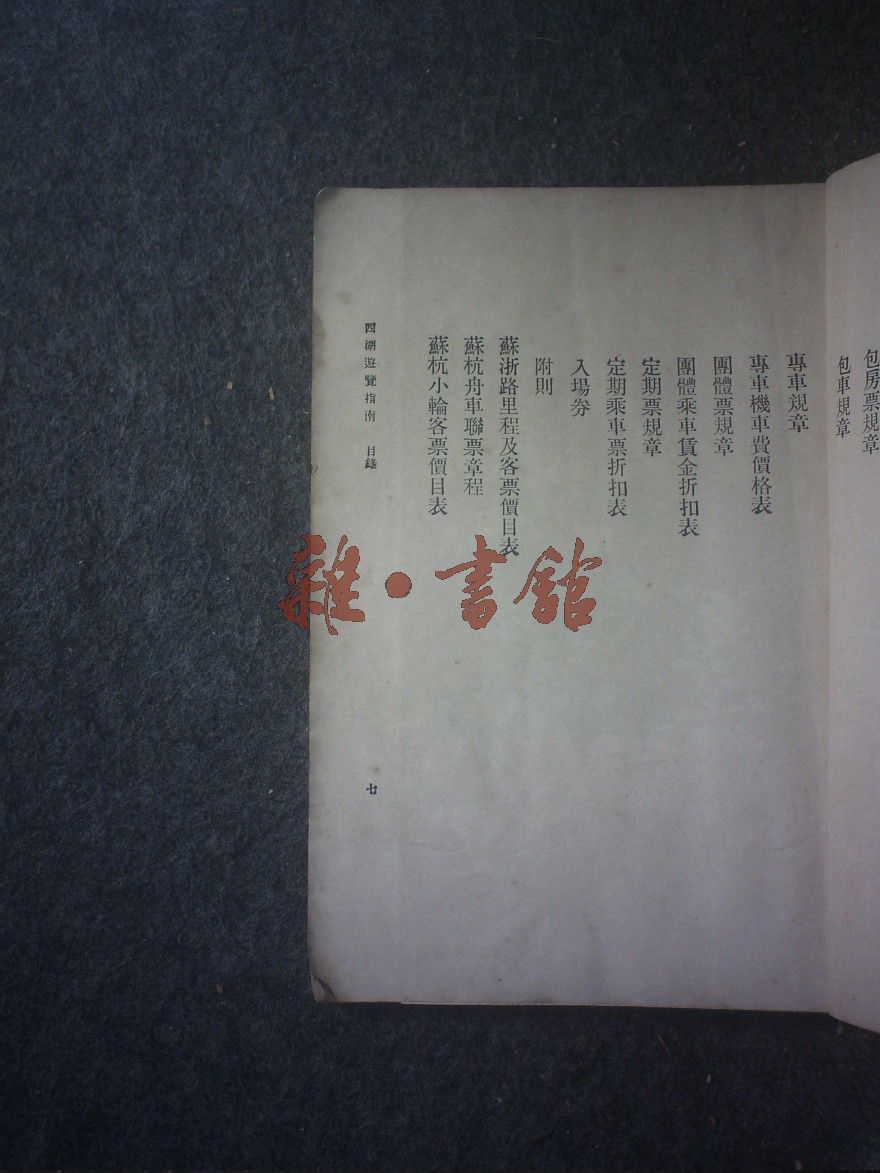 包房票規章
包車規章
專車規章
專車機車費價格表
團體票規章
團體乘車賃金折扣表
定期票規章
定期乘車票折扣表
入場券
附則
蘇浙路里程及客票價目表
蘇杭舟車聯票章程
蘇杭小輪客票價目表
西湖遊覽指南 目錄
七
雜·書館